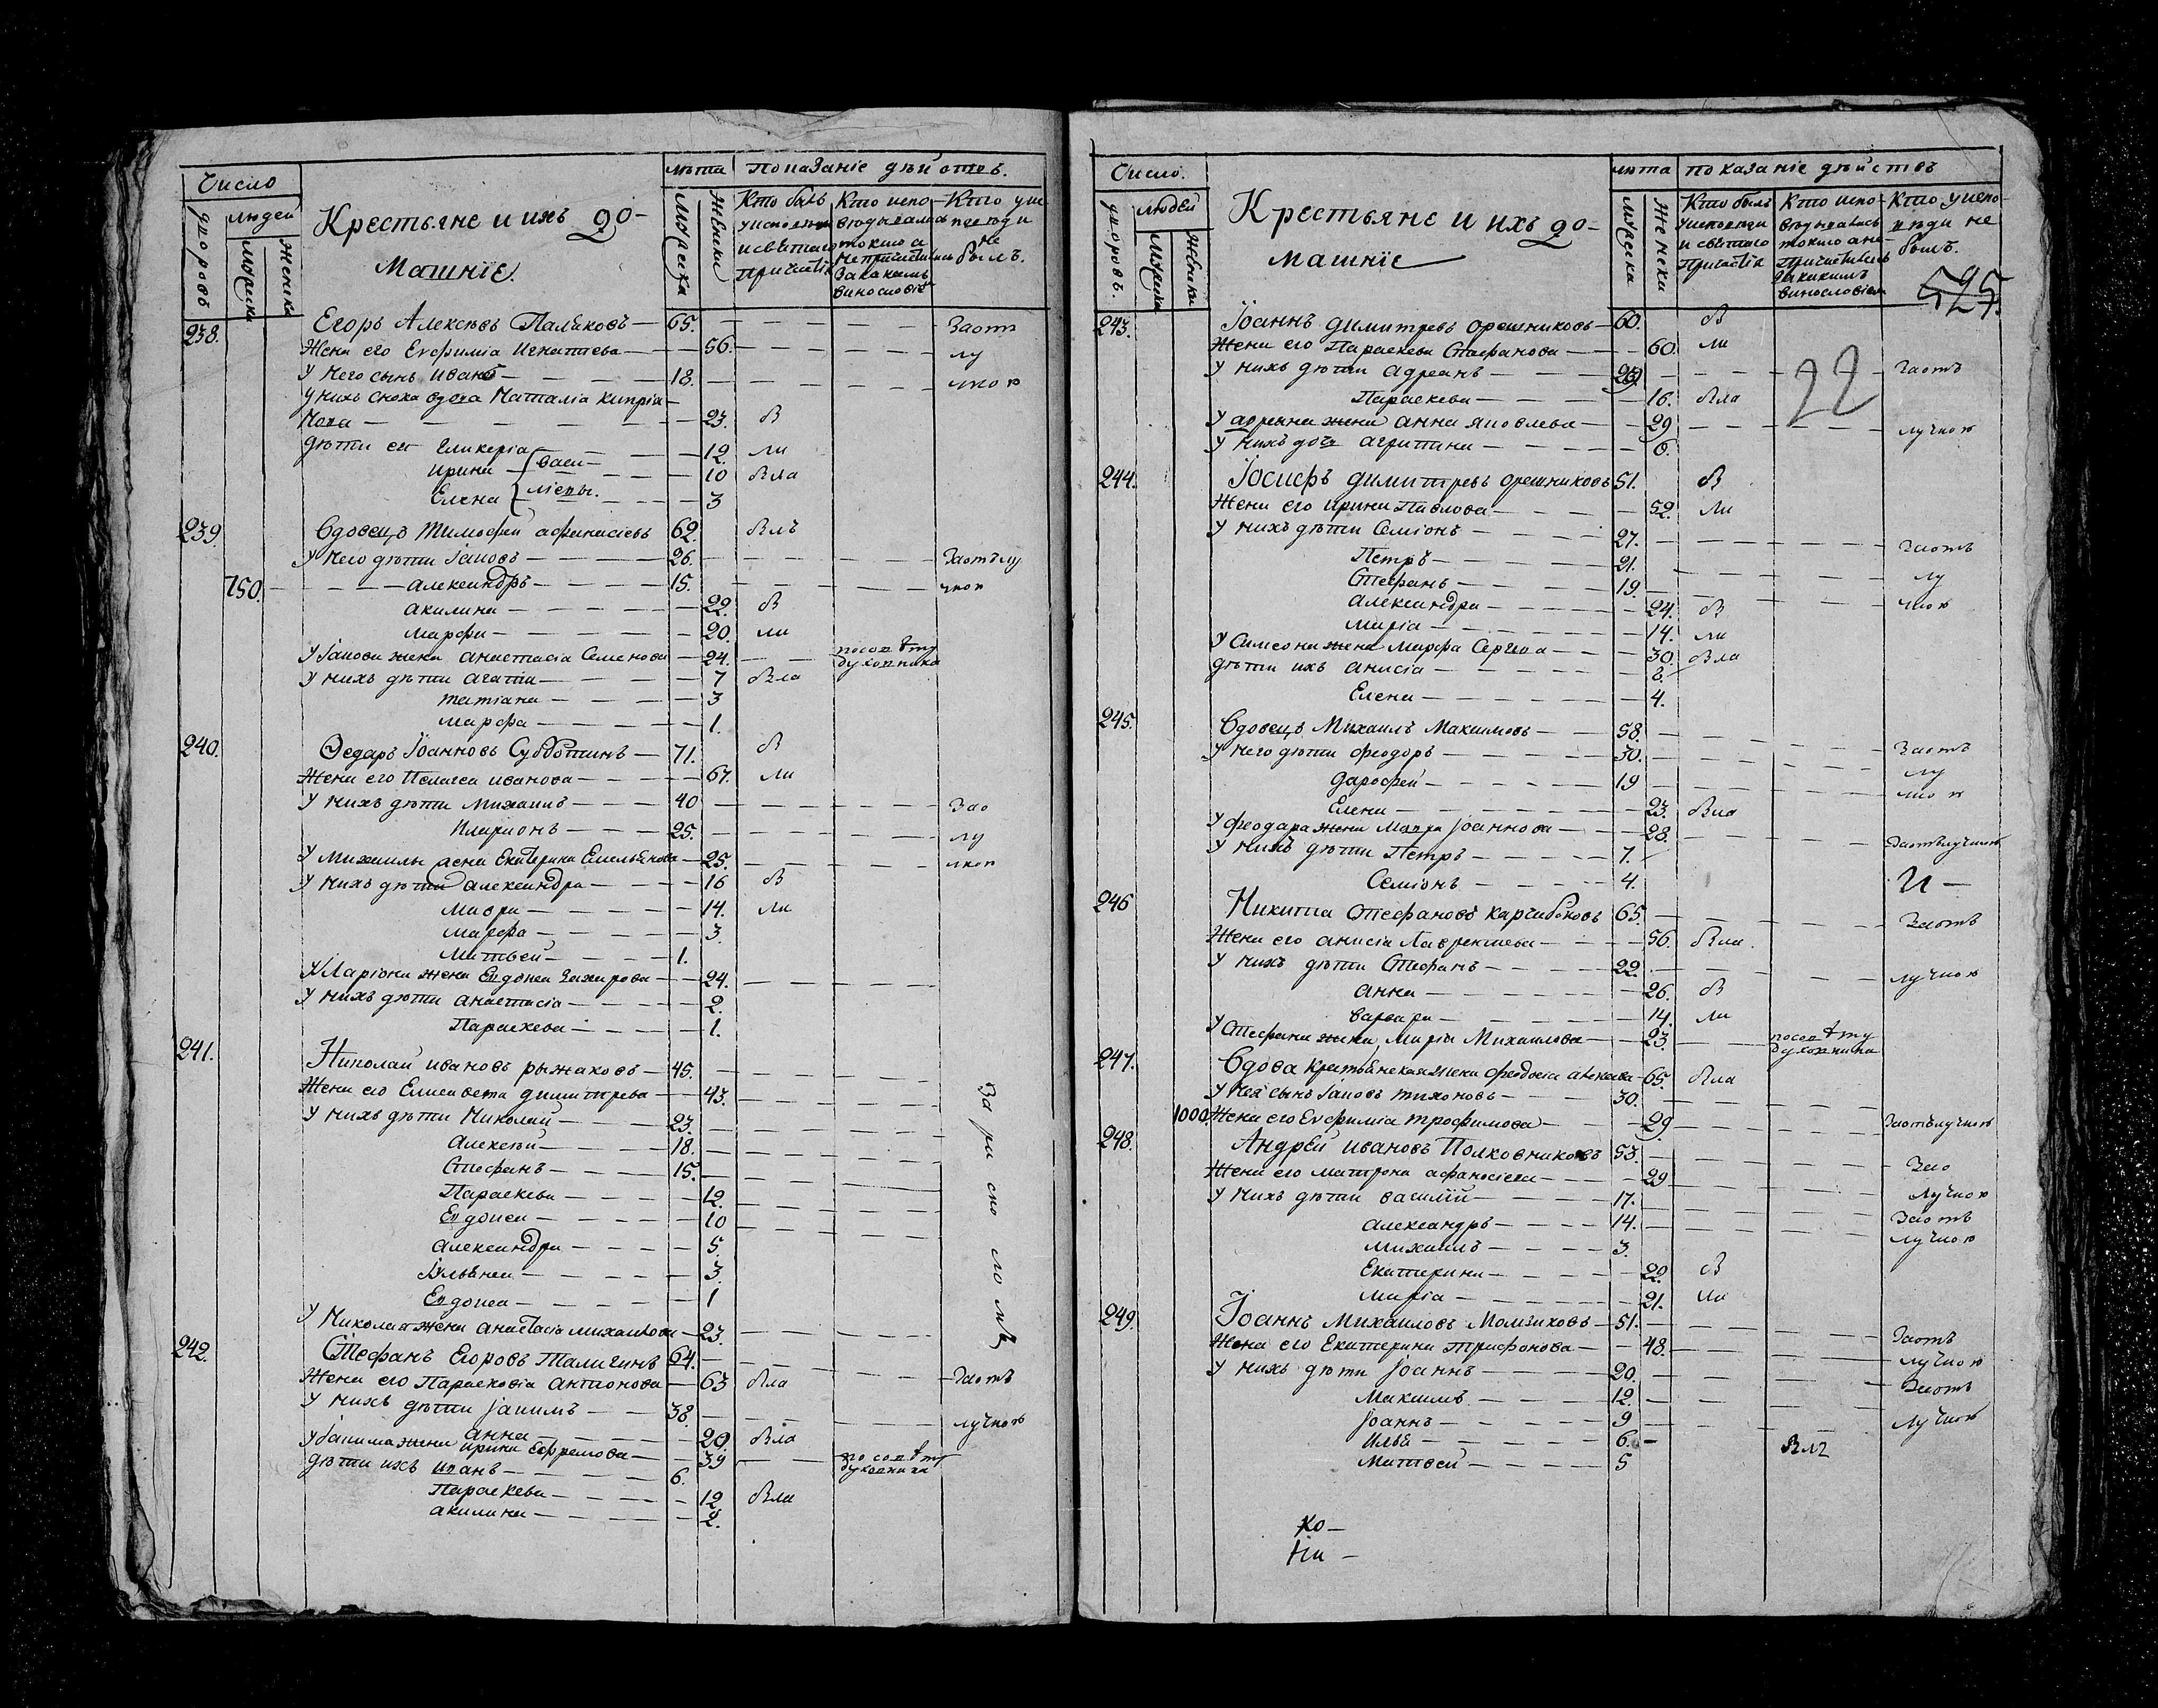 Число
лѣта показаніе дѣйствъ.
дворовъ
людей
мужска
женска
Крестьяне и ихъ до-
машніе.
мужска
женска
Кто былъ у исповѣди и святаго причастія
Кто исповѣдывался токмо а не причастился за какимъ винословіемъ
Кто у исповѣди не былъ.
238. Егоръ Алексѣевъ 65. Заотъ
Жена его Евфиміа Игнатіева 56. лу
У него сынъ Иванъ 18. чкою
У нихъ сноха вдова Наталіа Кипріа-
нова 23. В
дѣти ея Гликеріа 12. ли
Ирина 10 Вла
Елена 3
239. Вдовецъ Тимофей Афанасіевъ 62. Влъ
У него дѣти Іаковъ 26. Заотлу
750. Александръ 15. чкою
Акилина 22. В
Марфа 20. ли
У Іакова жена Анастасіа Семенова 24. по совѣту духовника
У нихъ дѣти Агафіа 7 Вла
Татіана 3
Марфа 1.
240. Ѳедаръ Іоанновъ Субботинъ 71. В
Жена его Пелагеа Иванова 67. ли
У нихъ дѣти Михаилъ 40 Зао
Иларионъ 25. лу
У Михаилы жена Екатерина Емельянова 25. чкою
У нихъ дѣти Александра 16 В
Мавра 14. ли
Марфа 3.
Матвей 1.
У Ларіона жена Евдокеа Захарова 24.
У нихъ дѣти Анастасіа 2.
Параскева 1.
241. Николай Ивановъ Рыжаковъ 45.
Жена его Елисавета Димитрева 43.
У нихъ дѣти Николай 23.
Алексѣй 18.
Стефанъ 15.
Параскева 12.
Евдокеа 10
Александра 5.
Ульянеа 3.
Евдокеа 1
У Николая жена Анастасіа Михаилова 23.
За раскололъ
242. Стефанъ Егоровъ Талигинъ 64. Заотъ
Жена его Парасковіа Антонова 63 Вла
У нихъ дѣти Іакимъ 38. лучкою
Анна 20. Вла
У Іакима жена Ирина Ефремова 39 по совѣту духовника
дѣти ихъ Иванъ 6.
Параскева 12 Вла
Акилина 2.
Число.
лѣта показаніе дѣйствъ
дворовъ.
людей
мужска
женска
Крестьяне и ихъ до-
машніе
мужска
женска
Кто былъ у исповѣди и святаго причастія
Кто исповѣдывались токмо а не причастились за какимъ винословіемъ
Кто у исповѣди не былъ.
525.
22
243. Іоаннъ Димитревъ Орешниковъ 60. В
Жена его Параскева Стефанова 60. ли
У нихъ дѣти Адреанъ Заотъ
Параскева 16. Вла
У Адреяна жена Анна Яковлева 29 лучкою
У нихъ дочь Агрипина 6.
244. Іосифъ Димитревъ Орешниковъ 51. В
Жена его Ирина Павлова 52. ли
У нихъ дѣти Семіонъ 27. Заотъ
Петръ 21. лу
Стефанъ 19. чкою
Александра 24. В
Маріа 14. ли
У Симеона жена Марфа Сергева 30. Вла
дѣти ихъ Анисіа 8.
Елена 4.
245. Вдовецъ Михаилъ Максимовъ 58. Заотъ
У него дѣти Феодоръ 30. лу
Дарофей 19 чкою
Елена 23. Вла
У Феодара жена Мавра Іоаннова 28. Заотлучкою
У нихъ дѣти Петръ 7.
Семіонъ 4.
246 Никита Стефановъ 65. Заотъ
Жена его Анисіа Лаврентиева 56. Вла.
У нихъ дѣти Стефанъ 22. лучкою
Анна 26. В
Варвара 14. ли
У Стефана жена Маріа Михаилова 23. по совѣту духовника
247. Вдова крестьянская жена Феодосіа 65. Вла
У нея сынъ Іаковъ Тихоновъ 30.
1000. Жена его Евфиміа Трофимова 29. Заотлучкою
248. Андрей Ивановъ Полковниковъ 53. Зао
Жена его Матрона Афанасіева 29 лучкою
У нихъ дѣти Василій 17. Заотъ
Александръ 14. лучкою
Михаилъ 3.
Екатерина 22. В
Маріа 21. ли
249. Іоаннъ Михаиловъ 51. Заотъ
Жена его Екатерина Трифонова 48. лучкою
У нихъ дѣти Іоаннъ 20. Заотъ
Максимъ 12. лучкою
Іоаннъ 9
Илья 6.
Матвей 5